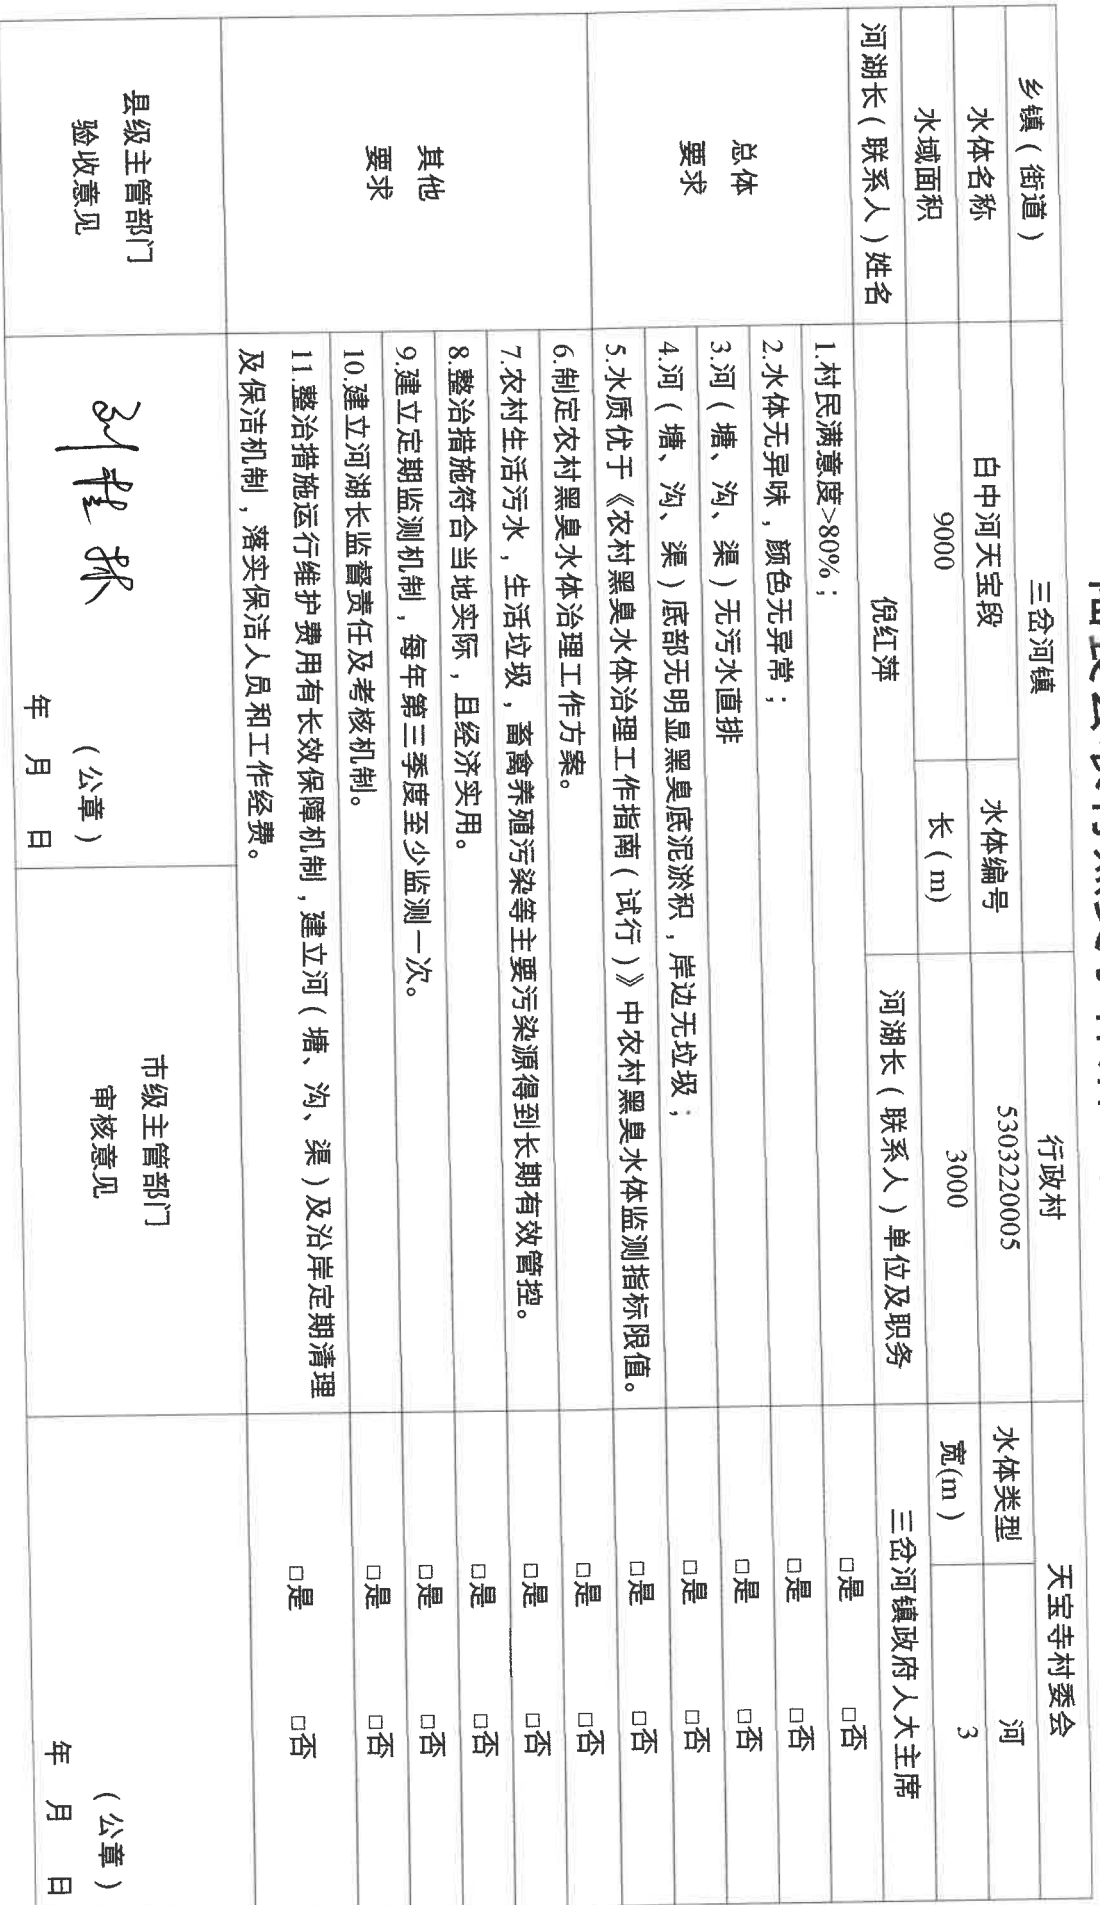 乡镇（街道） 三岔河镇 行政村 天宝寺村委会
水体名称 白中河天宝段 水体编号 5303220005 水体类型 河
水域面积 9000 长（m) 3000 宽(m） 3
河湖长（联系人）姓名 倪红萍 河湖长（联系人）单位及职务 三岔河镇政府人大主席
总体
要求
1.村民满意度>80%； □是 □否
2.水体无异味，颜色无异常； □是 □否
3.河（塘、沟、渠）无污水直排 □是 □否
4.河（塘、沟、渠）底部无明显黑臭底泥淤积，岸边无垃圾； □是 □否
5.水质优于《农村黑臭水体治理工作指南（试行）》中农村黑臭水体监测指标限值。 □是 □否
其他
要求
6.制定农村黑臭水体治理工作方案。 □是 □否
7.农村生活污水，生活垃圾，畜禽养殖污染等主要污染源得到长期有效管控。 □是 □否
8.整治措施符合当地实际，且经济实用。 □是 □否
9.建立定期监测机制，每年第三季度至少监测一次。 □是 □否
10.建立河湖长监督责任及考核机制。 □是 □否
11.整治措施运行维护费用有长效保障机制，建立河（塘、沟、渠）及沿岸定期清理
及保洁机制，落实保洁人员和工作经费。 □是 □否
县级主管部门
验收意见
（公章）
年 月 日
市级主管部门
审核意见
（公章）
年 月 日